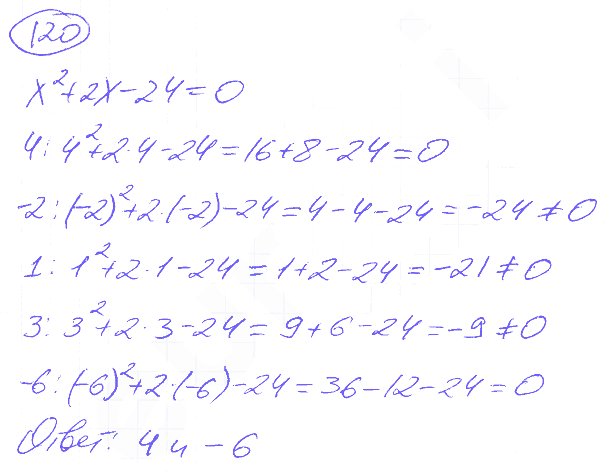 120
x²+2x-24=0
4: 4²+2·4-24=16+8-24=0
-2: (-2)²+2·(-2)-24=4-4-24=-24≠0
1: 1²+2·1-24=1+2-24=-21≠0
3: 3²+2·3-24=9+6-24=-9≠0
-6: (-6)²+2·(-6)-24=36-12-24=0
Ответ: 4 и -6